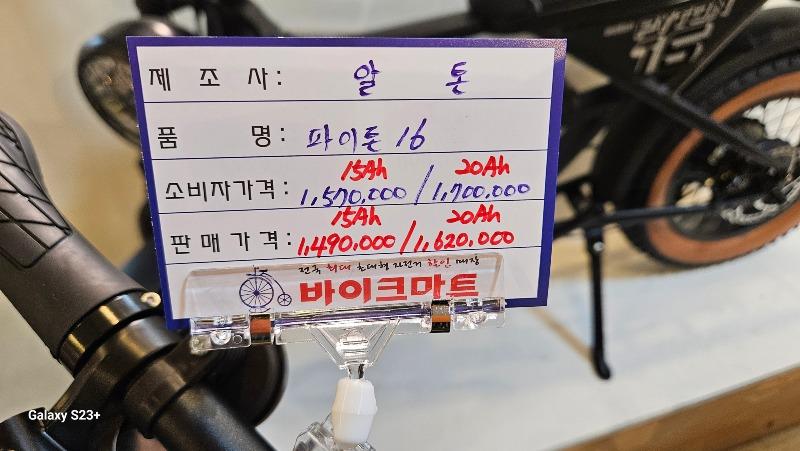 제 조 사: 알 톤
품 명: 파이톤 16
15Ah 20Ah
소비자가격: 1,570,000 / 1,700,000
15Ah 20Ah
판매가격: 1,490,000 / 1,620,000
전국 최대 초대형 자전거 할인 매장
바이크마트
Galaxy S23+